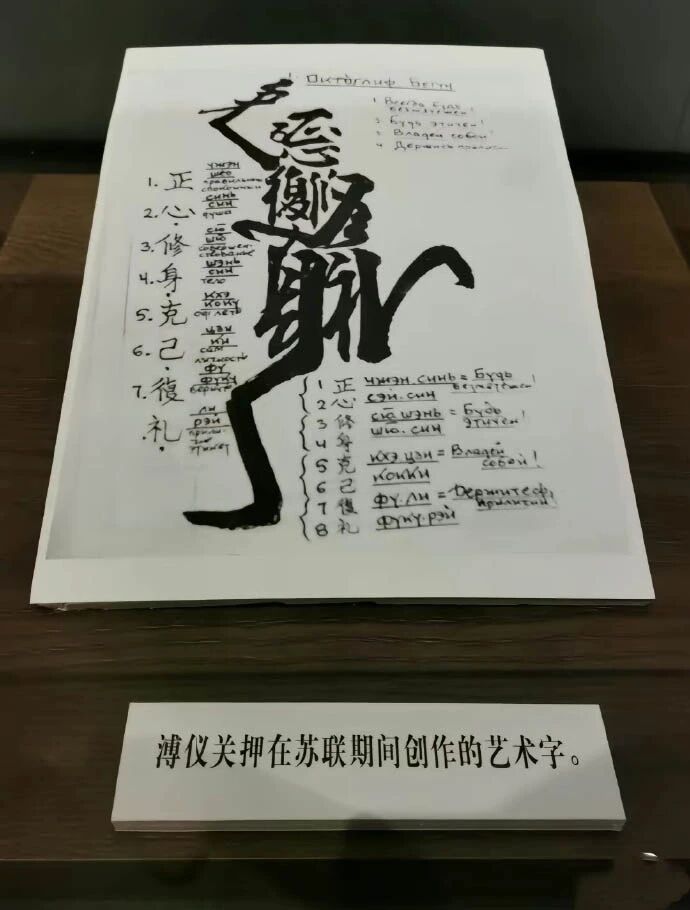 1. Октоглиф Бегун
1 Всегда будь безмятежен!
2 Будь этичен!
3 Владей собой!
4 Держись
正心修身克己復礼
1. 正 чжэн
сёо
правильный
спокойный
2. 心 синь
син
душа
3. 修 сю
шю
совершенствование
4. 身 шэнь
син
тело
5. 克 кхэ
коку
одолеть
6. 己 цзи
ки
сам
личность
7. 復 фу
фуку
礼 ли
рэй
этикет
1 正 чжэн.синь = Будь безмятежен!
2 心 сэй.син
3 修 сю шэнь = Будь этичен!
4 身 шю.син
5 克 кхэ цзи = Владей собой!
6 己 кокки
7 復 фу.ли = Держитесь приличий
8 礼 фуку.рэй
溥仪关押在苏联期间创作的艺术字。